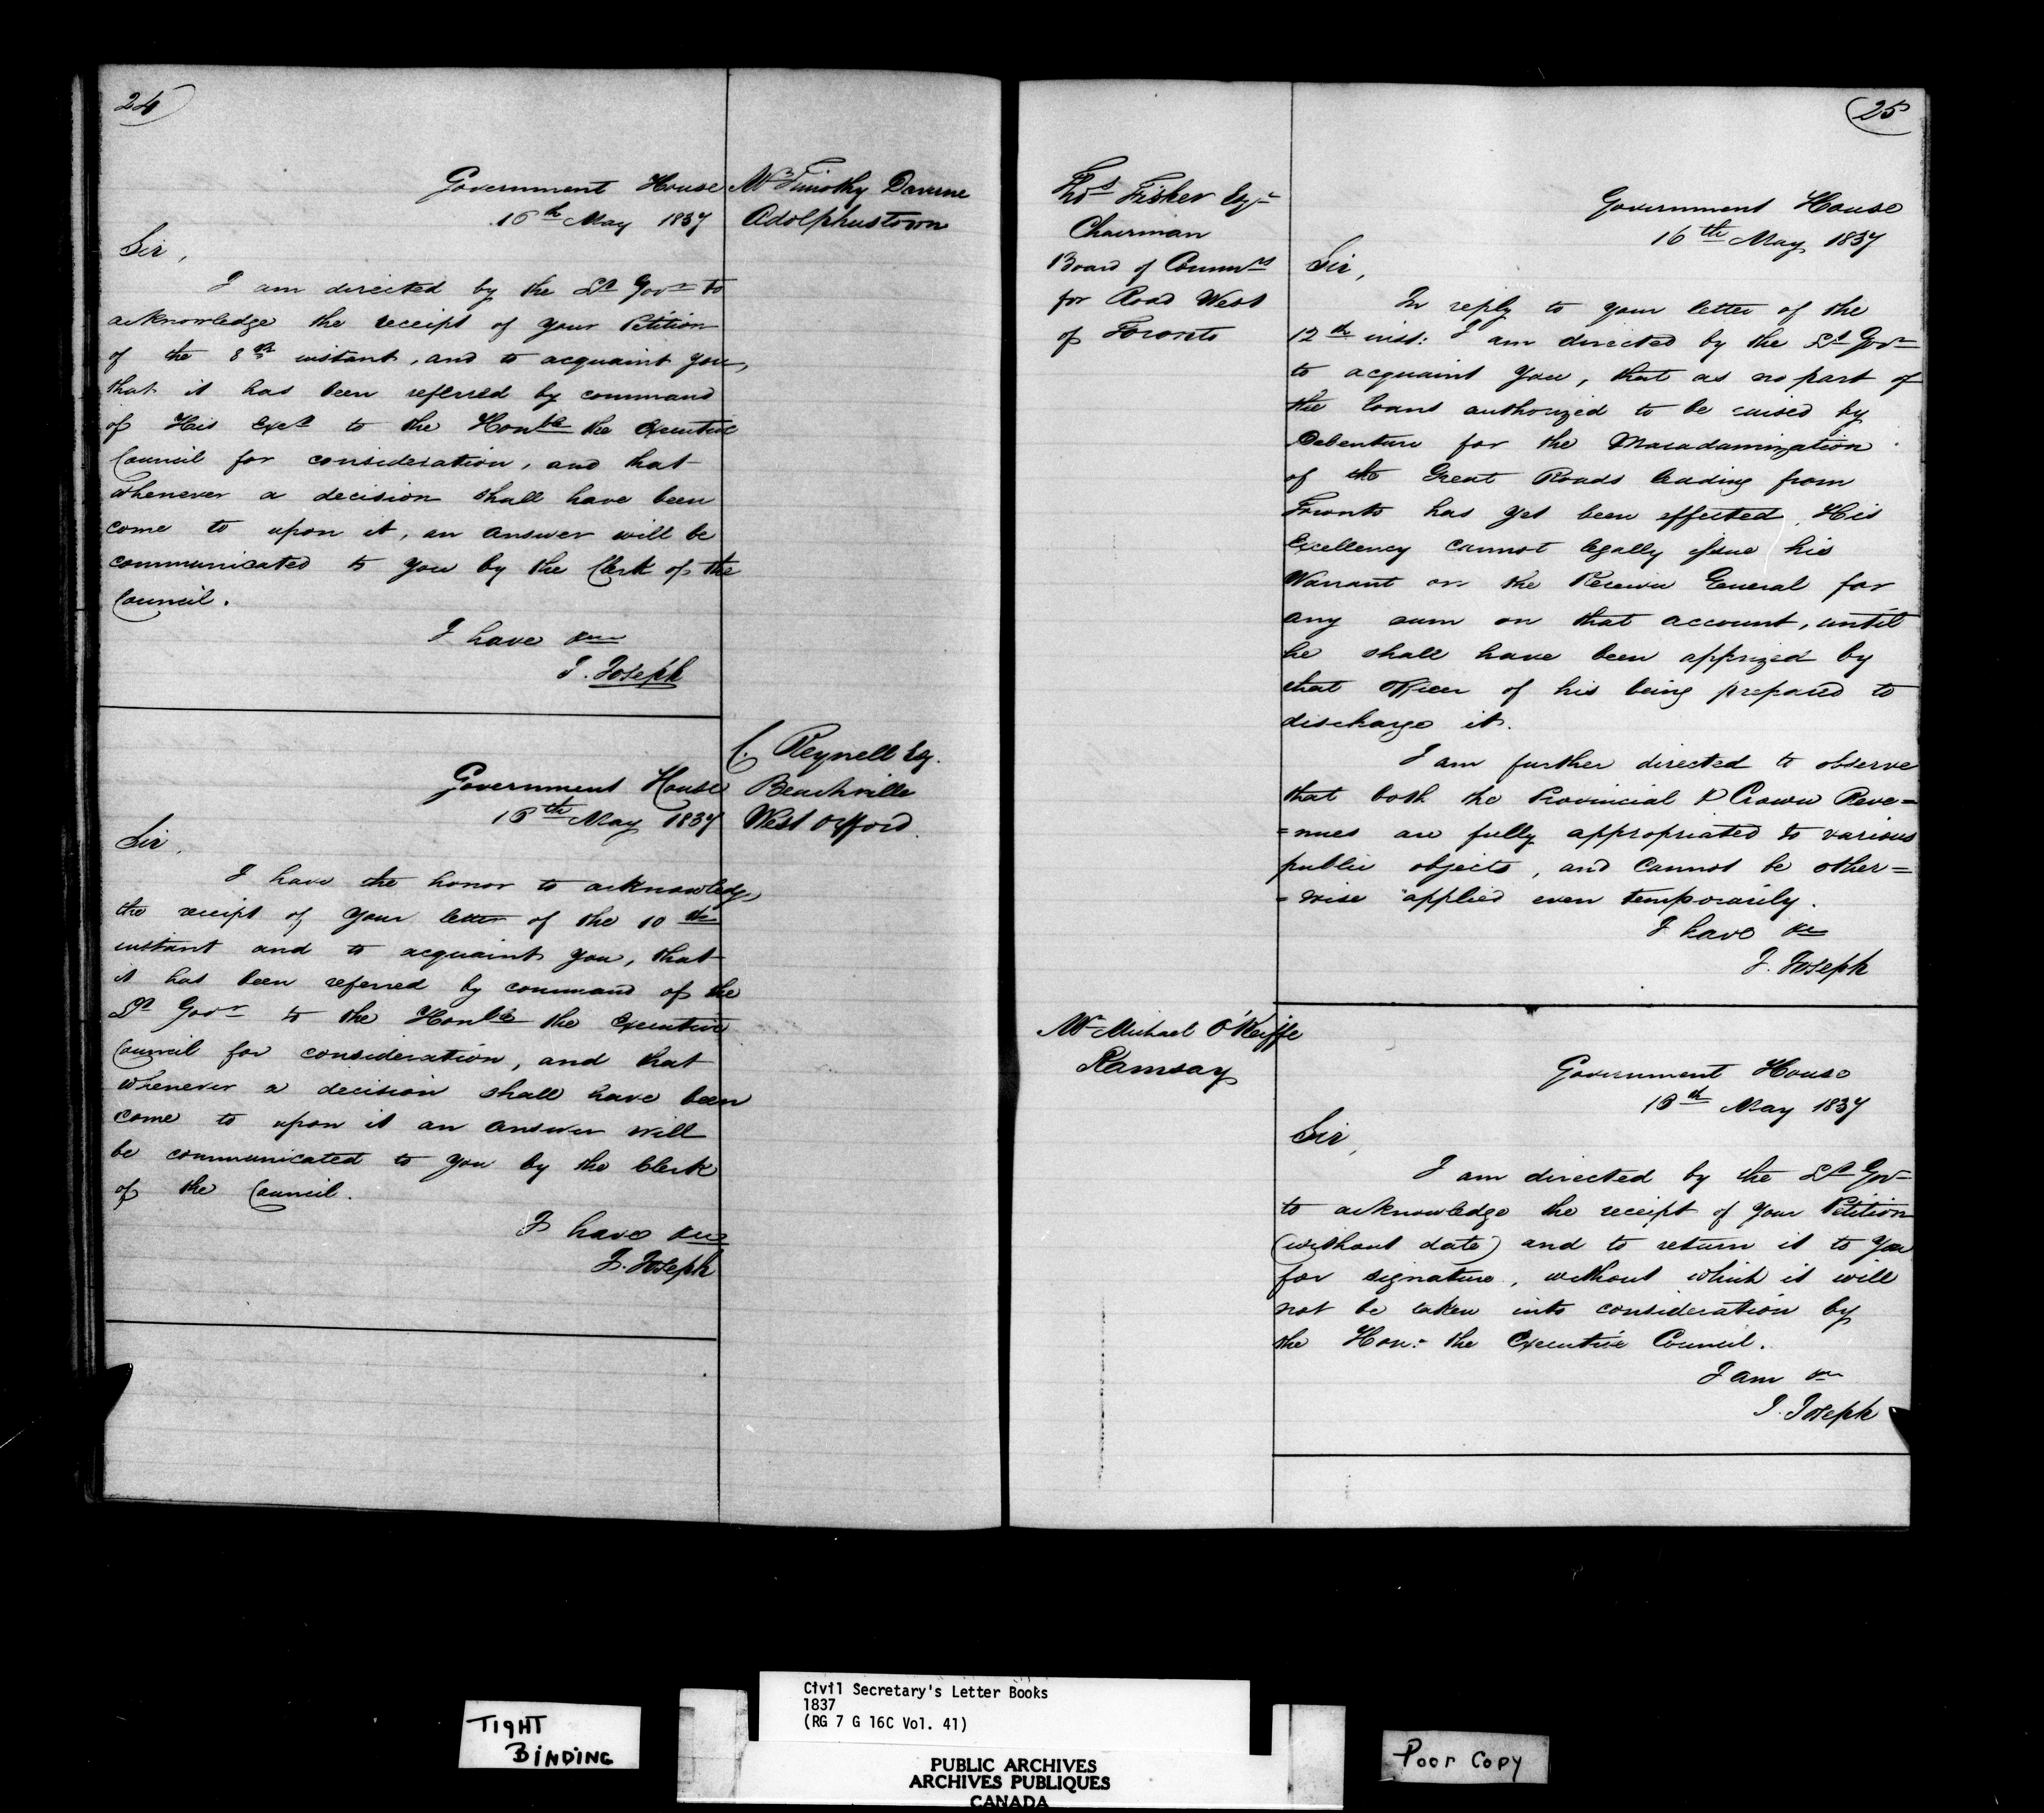 24
Government House
16th May 1837
Mr Timothy Davern
Adolphustown
Sir,
I am directed by the Lt Govr to
acknowledge the receipt of your Petition
of the 8th instant, and to acquaint you,
that it has been referred by command
of His Excy to the Honble the Executive
Council for consideration, and that
whenever a decision shall have been
come to upon it, an answer will be
communicated to you by the Clerk of the
Council.
I have &c
J. Joseph
C. Reynell Esq.
Beachville
West Oxford.
Government House
16th May 1837
Sir,
I have the honor to acknowledge
the receipt of your letter of the 10th
instant and to acquaint you, that
it has been referred by command of the
Lt Govr to the Honble the Executive
Council for consideration, and that
whenever a decision shall have been
come to upon it an answer will
be communicated to you by the Clerk
of the Council.
I have &c
J. Joseph
25
Thos Fisher Esqr
Chairman
Board of Commrs
for Road West
of Toronto
Government House
16th May 1837
Sir,
In reply to your letter of the
12th inst: I am directed by the Lt Govr
to acquaint you, that as no part of
the loans authorized to be raised by
Debenture for the Macadamization
of the Great Roads leading from
Toronto has yet been effected, His
Excellency cannot legally issue his
Warrant on the Receiver General for
any sum on that account, until
he shall have been apprized by
that Officer of his being prepared to
discharge it.
I am further directed to observe
that both the Provincial & Crown Reve=
=nues are fully appropriated to various
public objects, and cannot be other=
=wise applied even temporarily.
I have &c
J. Joseph
Mr Michael O'Keiffe
Ramsay
Government House
16th May 1837
Sir,
I am directed by the Lt Govr
to acknowledge the receipt of your Petition
(without date) and to return it to you
for signature, without which it will
not be taken into consideration by
the Hon: the Executive Council.
I am &c
J. Joseph
TIGHT
BINDING
Civil Secretary's Letter Books
1837
(RG 7 G 16C Vol. 41)
PUBLIC ARCHIVES
ARCHIVES PUBLIQUES
CANADA
Poor Copy